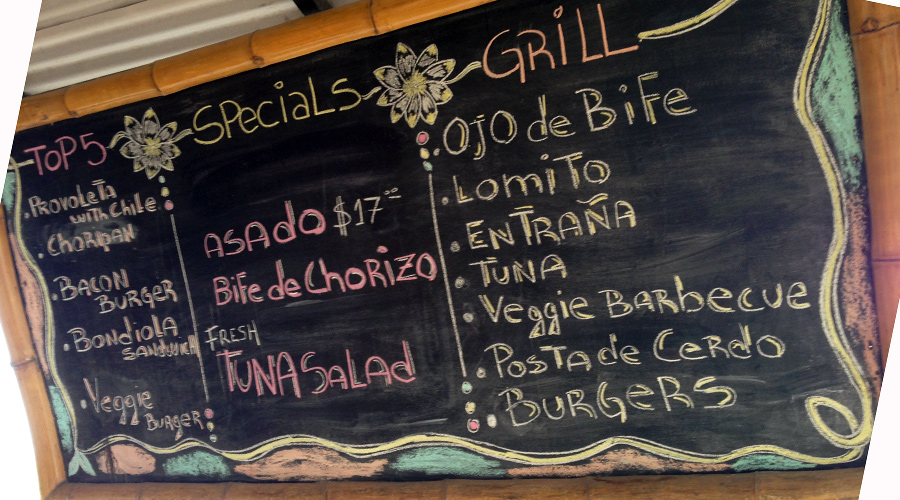 TOP 5
• PROVOLETA
WITH CHILE
• CHORIPAN
• BACON
BURGER
• BONDIOLA
SANDWICH
• Veggie
BURGER
SPECIALS
ASADO $17
Bife de CHORIZO
FRESH
TUNA SALAD
GRILL
• OJO de BiFe
• LOMITO
• ENTRAÑA
• TUNA
• Veggie BARbecue
• POSTA de CeRdO
• BURGeRS